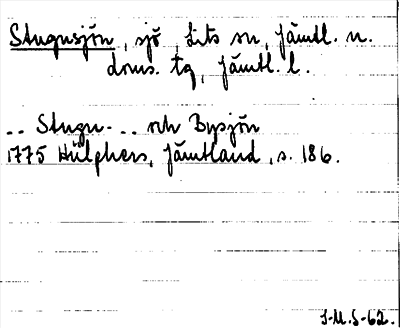 Stugusjön, sjö, Lits sn, Jämtl. n.
doms. tg, Jämtl. l.
.. Stugu- .. och Bysjön
1775 Hülphers, Jämtland, s. 186.
S-M.S-62.